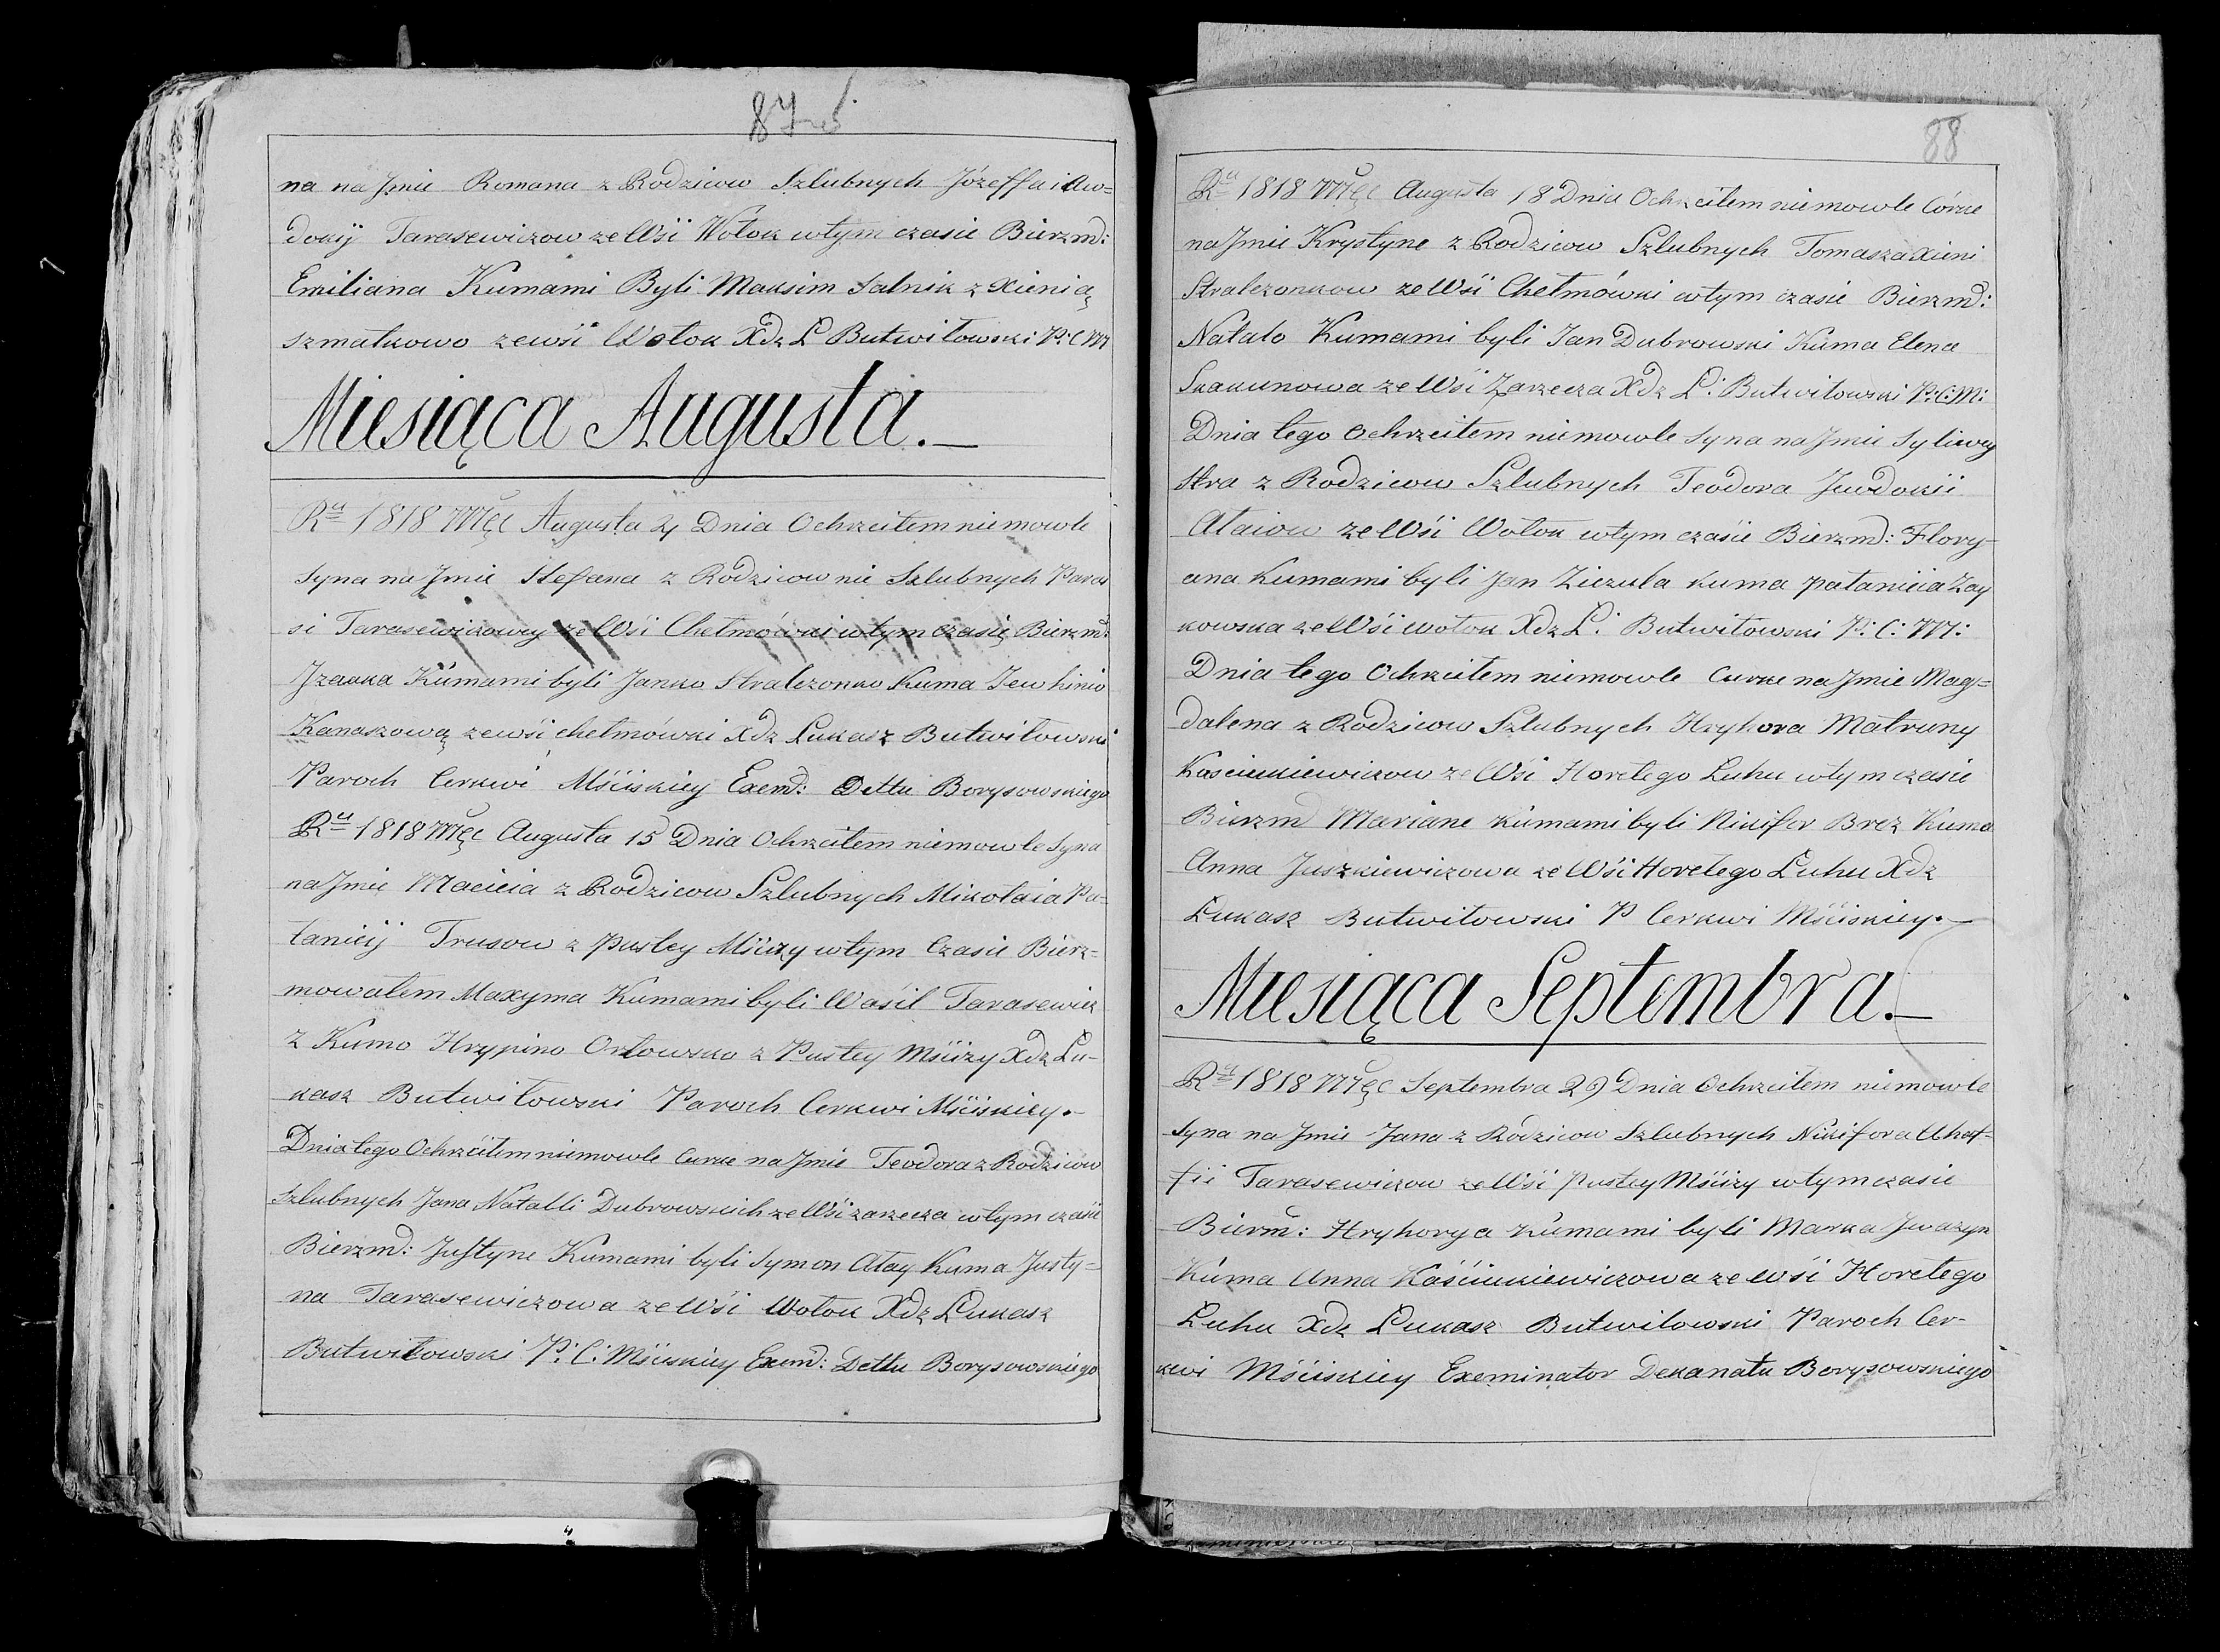 87 об.
na na Jmie Romana z Rodzicow Szlubnych Józeffa i Aw=
dokij Tarasewiczow ze Wśi Wołok wtym czasie Bierzmd:
Emiliana Kumami Byli Maksim Salnik z Xienią
szmatkowo zewśi Wołok Xdz Ł Butwiłowski P: C M
Miesiąca Augusta.—
Ru 1818 Męc Augusta 4 Dnia Ochrzciłem niemowle
Syna na Jmie Stefana z Rodzicow nie Szlubnych Paras
si Tarasewiczowey ze Wśi Chełmówki wtym czasię Bierzmd:
Jzaaka Kumami byli Janko Stralczonko Kuma Jewhinio
Kanaszową zewśi chełmówki Xdz Łukasz Butwiłowski
Paroch Cerkwi Mściskiey Exemd: Dettu Borysowskiego
Ru 1818 Męc Augusta 15 Dnia Ochrzciłem niemowle Syna
na Jmie Macieia z Rodzicow Szlubnych Mikołaia Pa=
łanieij Trusow z Pustey Mśiży wtym Czasie Bierz=
mowałem Maxyma Kumami byli Waśil Tarasewicz
z Kumo Hrypino Orłowsko z Pustey Mśiży Xdz Łu-
kasz Butwiłowski Paroch Cerkwi Mściskiey.—
Dnia tego Ochrzciłem niemowle Curke na Jmie Teodora z Rodzicow
Szlubnych Jana Natalli Dubrowskich ze Wśi zarzecza wtym czasie
Bierzmd: Justyne Kumami byli Symon Atay Kuma Justy=
na Tarasewiczowa ze Wśi Wołok Xdz Łukasz
Butwiłowski P: C: Mściskiey Exemd: Dettu Borysowskiego
88
Ru 1818 Męc Augusta 18 Dnia Ochrzciłem niemowle Córke
na Jmie Krystyne z Rodzicow Szlubnych Tomasza Xieni
Stralczonkow ze Wśi Chełmówki wtym czasie Bierzmd:
Natalo Kumami byli Jan Dubrowski Kuma Elena
Skakunowa ze Wśi Zarzecza Xdz Ł: Butwiłowski P: C: M:
Dnia tego Ochrzciłem niemowle Syna na Jmie Syliwey
stra z Rodzicow Szlubnych Teodora Jewdokii
Ataiow ze Wśi Wołok wtym czasie Bierzmd: Flory-
ana Kumami byli Jan Ziezula kuma pałanieia Zay
kowska ze Wśi wołok Xdz Ł: Butwiłowski P: C: M:
Dnia tego Ochrzciłem niemowle Curke na Jmie Mag=
dalena z Rodzicow Szlubnych Hryhora Matruny
Kasciukiewiczow ze Wśi Horełego Łuhu wtym czasie
Bierzmd Mariane kumami byli Nikifor Brez Kuma
Anna Juszkiewiczowa ze Wśi Horełego Łuhu Xdz
Łukasz Butwiłowski P Cerkwi Mściskiey.—
Miesiąca Septembra.—
Ru 1818 Męc Septembra 29 Dnia Ochrzciłem niemowle
Syna na Jmie Jana z Rodzicow Szlubnych Nikifora Ahaf-
fii Tarasewiczow ze Wśi Pustey Mśiży wtym czasie
Bierm: Hryhorya kumami byli Marka Jwazyn
Kuma Anna Kaściukiewiczowa ze wśi Horełego
Łuhu Xdz Łukasz Butwiłowski Paroch Cer-
kwi Mściskiey Exeminator Dekanatu Borysowskiego